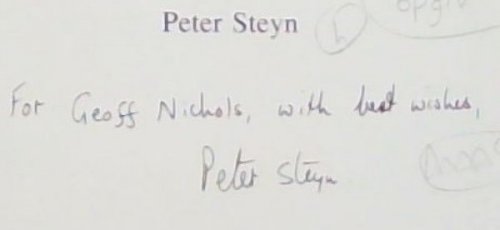 Peter Steyn
For Geoff Nichols, with best wishes,
Peter Steyn